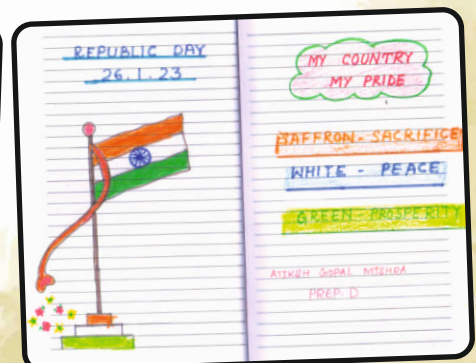 REPUBLIC DAY
26.1.23
MY COUNTRY
MY PRIDE
SAFFRON - SACRIFICE
WHITE - PEACE
GREEN - PROSPERITY
GOPAL MISHRA
PREP. D